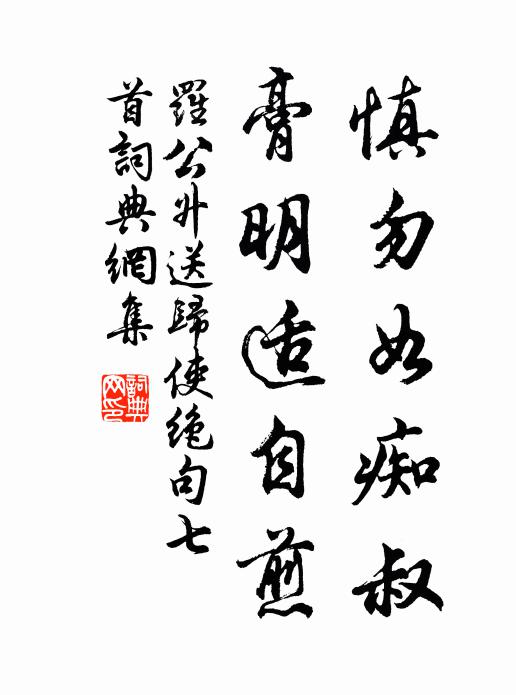 慎勿如痴叔
膏明适自煎
羅公升送歸使絶句七
首詞典網集
詞典网印